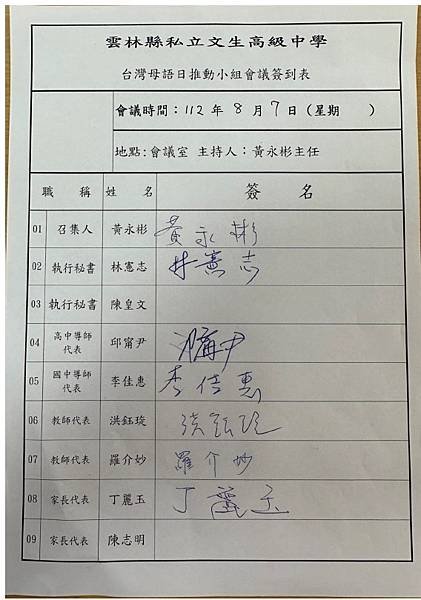 雲林縣私立文生高級中學
台灣母語日推動小組會議簽到表
會議時間：112 年 8 月 7 日（星期　　）
地點:會議室 主持人：黃永彬主任
職　稱 姓　名 簽　名
01 召集人 黃永彬 黃永彬
02 執行秘書 林憲志 林憲志
03 執行秘書 陳皇文
04 高中導師代表 邱甯尹
05 國中導師代表 李佳惠 李佳惠
06 教師代表 洪鈺琁 洪鈺琁
07 教師代表 羅介妙 羅介妙
08 家長代表 丁麗玉 丁麗玉
09 家長代表 陳志明